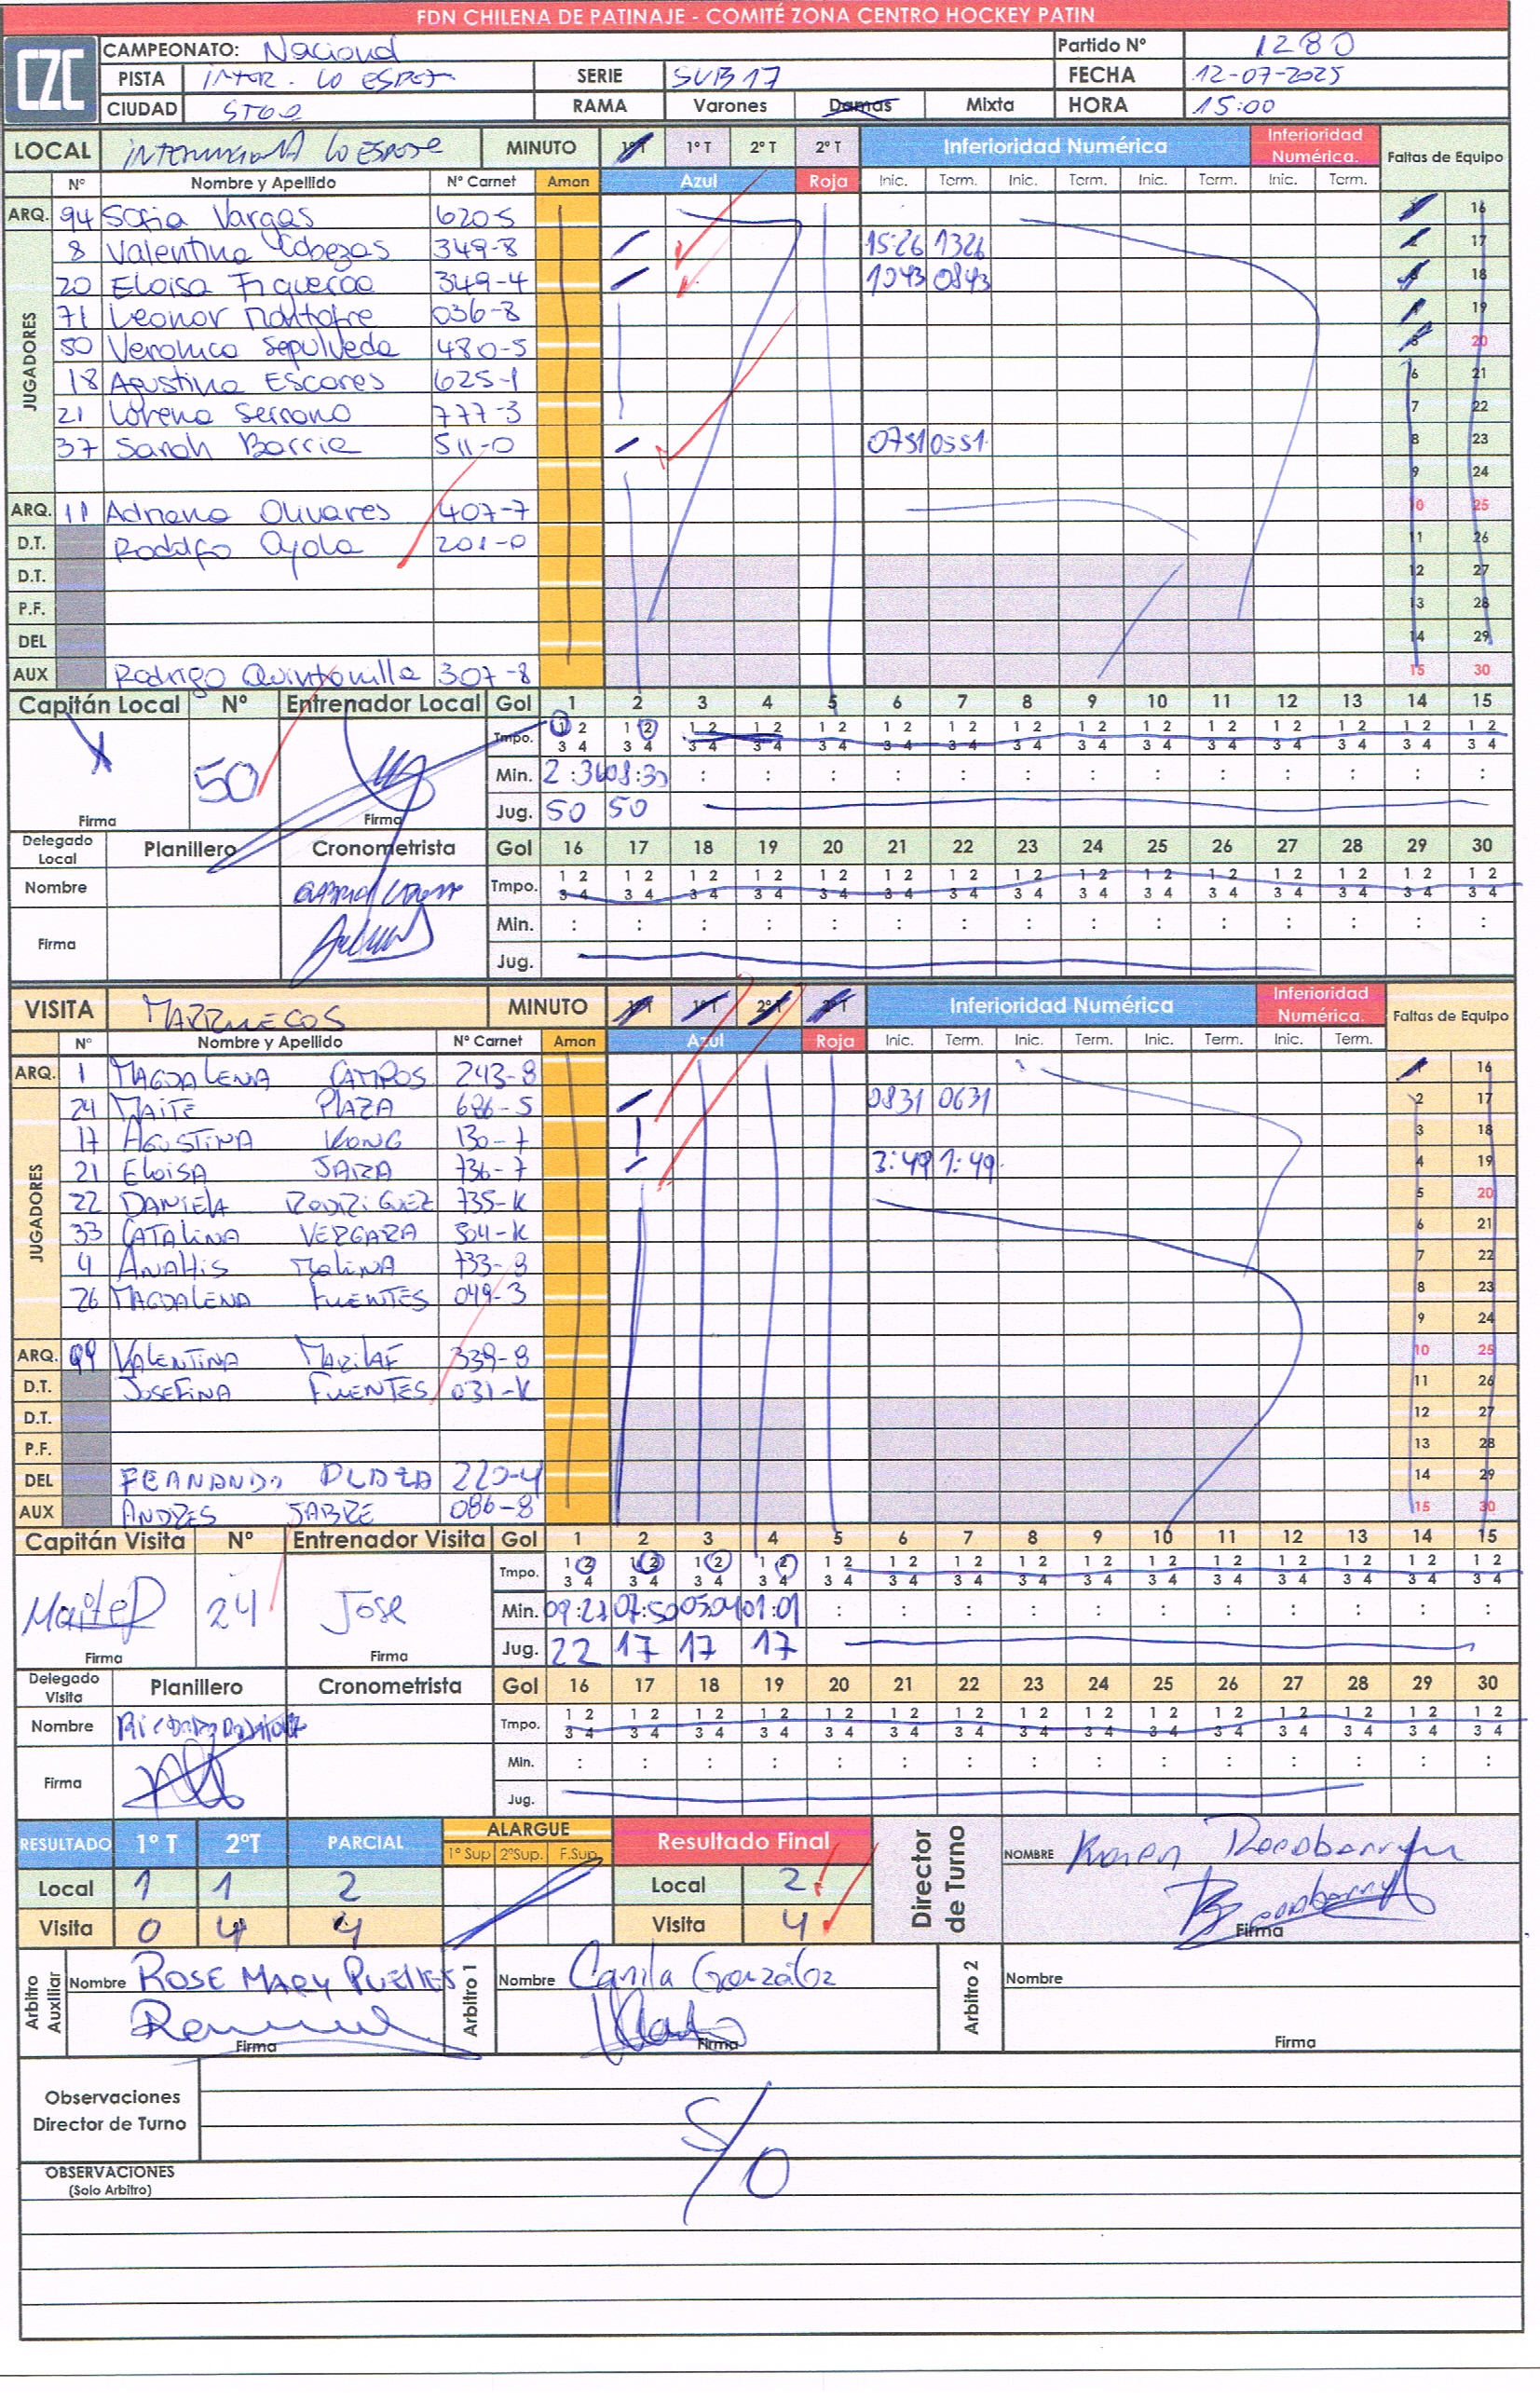 FDN CHILENA DE PATINAJE - COMITÉ ZONA CENTRO HOCKEY PATIN
CZC
CAMPEONATO: Nacional Partido Nº 1280
PISTA INTER. LO ESPEJ SERIE SUB17 FECHA 12-07-2025
CIUDAD STGO RAMA Varones Damas Mixta HORA 15:00
LOCAL LO ESPEJO MINUTO 1º T 1º T 2º T 2º T Inferioridad Numérica Inferioridad Numérica. Faltas de Equipo
Nº Nombre y Apellido Nº Carnet Amon Azul Roja Inic. Term. Inic. Term. Inic. Term. Inic. Term.
ARQ. 94 Sofia Vargas 620-5 1 16
JUGADORES
8 Valentina Cabezas 349-8 15:26 1326 2 17
20 Eloisa Figueroa 349-4 1043 0843 3 18
71 Leonor Montofre 036-8 4 19
50 Veronica Sepulveda 480-5 5 20
18 Agustina Escares 625-1 6 21
21 Lorena Serrano 777-3 7 22
37 Sarah Barrie 511-0 0751 0551 8 23
9 24
ARQ. 11 Adriana Olivares 407-7 10 25
D.T. Rodolfo Ayala 201-0 11 26
D.T. 12 27
P.F. 13 28
DEL 14 29
AUX Rodrigo Quintanilla 307-8 15 30
Capitán Local Nº Entrenador Local Gol 1 2 3 4 5 6 7 8 9 10 11 12 13 14 15
Tmpo. 1 2 1 2 1 2 1 2 1 2 1 2 1 2 1 2 1 2 1 2 1 2 1 2 1 2 1 2 1 2
3 4 3 4 3 4 3 4 3 4 3 4 3 4 3 4 3 4 3 4 3 4 3 4 3 4 3 4 3 4
50 Min. 2:36 08:30 : : : : : : : : : : : : :
Firma Firma Jug. 50 50
Delegado Local Planillero Cronometrista Gol 16 17 18 19 20 21 22 23 24 25 26 27 28 29 30
Nombre Tmpo. 1 2 1 2 1 2 1 2 1 2 1 2 1 2 1 2 1 2 1 2 1 2 1 2 1 2 1 2 1 2
3 4 3 4 3 4 3 4 3 4 3 4 3 4 3 4 3 4 3 4 3 4 3 4 3 4 3 4 3 4
Firma Min. : : : : : : : : : : : : : : :
Jug.
VISITA MARRUECOS MINUTO 1º T 1º T 2º T 2º T Inferioridad Numérica Inferioridad Numérica. Faltas de Equipo
Nº Nombre y Apellido Nº Carnet Amon Azul Roja Inic. Term. Inic. Term. Inic. Term. Inic. Term.
ARQ. 1 MAGDALENA CAMPOS 243-8 1 16
JUGADORES
24 MAITE PLAZA 686-5 0831 0631 2 17
17 AGUSTINA KONG 130-7 3 18
21 Eloisa 736-7 3:49 1:49 4 19
22 DANIELA RODRIGUEZ 735-K 5 20
33 CATALINA VERGARA 504-K 6 21
4 ANAHIS MOLINA 733-8 7 22
26 MAGDALENA FUENTES 049-3 8 23
9 24
ARQ. 99 VALENTINA MARILAF 339-8 10 25
D.T. JOSEFINA FUENTES 031-K 11 26
D.T. 12 27
P.F. 13 28
DEL FERNANDO PLAZA 220-4 14 29
AUX ANDRES 086-8 15 30
Capitán Visita Nº Entrenador Visita Gol 1 2 3 4 5 6 7 8 9 10 11 12 13 14 15
Tmpo. 1 2 1 2 1 2 1 2 1 2 1 2 1 2 1 2 1 2 1 2 1 2 1 2 1 2 1 2 1 2
3 4 3 4 3 4 3 4 3 4 3 4 3 4 3 4 3 4 3 4 3 4 3 4 3 4 3 4 3 4
Maite P 24 Jose Min. 07:50 01:01 : : : : : : : : : : :
Firma Firma Jug. 22 17 17 17
Delegado Visita Planillero Cronometrista Gol 16 17 18 19 20 21 22 23 24 25 26 27 28 29 30
Nombre Tmpo. 1 2 1 2 1 2 1 2 1 2 1 2 1 2 1 2 1 2 1 2 1 2 1 2 1 2 1 2 1 2
3 4 3 4 3 4 3 4 3 4 3 4 3 4 3 4 3 4 3 4 3 4 3 4 3 4 3 4 3 4
Firma Min. : : : : : : : : : : : : : : :
Jug.
RESULTADO 1º T 2ºT PARCIAL ALARGUE Resultado Final Director de Turno
1º Sup 2ºSup. F.Sup. NOMBRE Karen
Local 1 1 2 Local 2
Visita 0 4 4 Visita 4 Firma
Arbitro Auxiliar Nombre ROSE MARY Arbitro 1 Nombre Camila González Arbitro 2 Nombre
Firma Firma Firma
Observaciones
Director de Turno
S/O
OBSERVACIONES
(Solo Arbitro)